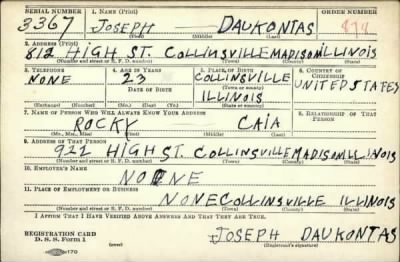 SERIAL NUMBER 1. NAME (Print) ORDER NUMBER
3367 JOSEPH DAUKONTAS 878
(First) (Middle) (Last)
2. ADDRESS (Print)
812 HIGH ST. COLLINSVILLE MADISON ILLINOIS
(Number and street or R. F. D. number) (Town) (County) (State)
3. TELEPHONE 4. AGE IN YEARS 5. PLACE OF BIRTH 6. COUNTRY OF CITIZENSHIP
NONE 23 COLLINSVILLE UNITED STATES
DATE OF BIRTH (Town or county)
ILLINOIS
(Exchange) (Number) (Mo.) (Day) (Yr.) (State or country)
7. NAME OF PERSON WHO WILL ALWAYS KNOW YOUR ADDRESS 8. RELATIONSHIP OF THAT PERSON
ROCKY CAIA
(Mr., Mrs., Miss) (First) (Middle) (Last)
9. ADDRESS OF THAT PERSON
922 HIGH ST. COLLINSVILLE MADISON ILLINOIS
(Number and street or R. F. D. number) (Town) (County) (State)
10. EMPLOYER'S NAME
NONE
11. PLACE OF EMPLOYMENT OR BUSINESS
NONE COLLINSVILLE ILLINOIS
(Number and street or R. F. D. number) (Town) (County) (State)
I AFFIRM THAT I HAVE VERIFIED ABOVE ANSWERS AND THAT THEY ARE TRUE.
REGISTRATION CARD
D. S. S. Form 1
JOSEPH DAUKONTAS
(Registrant's signature)